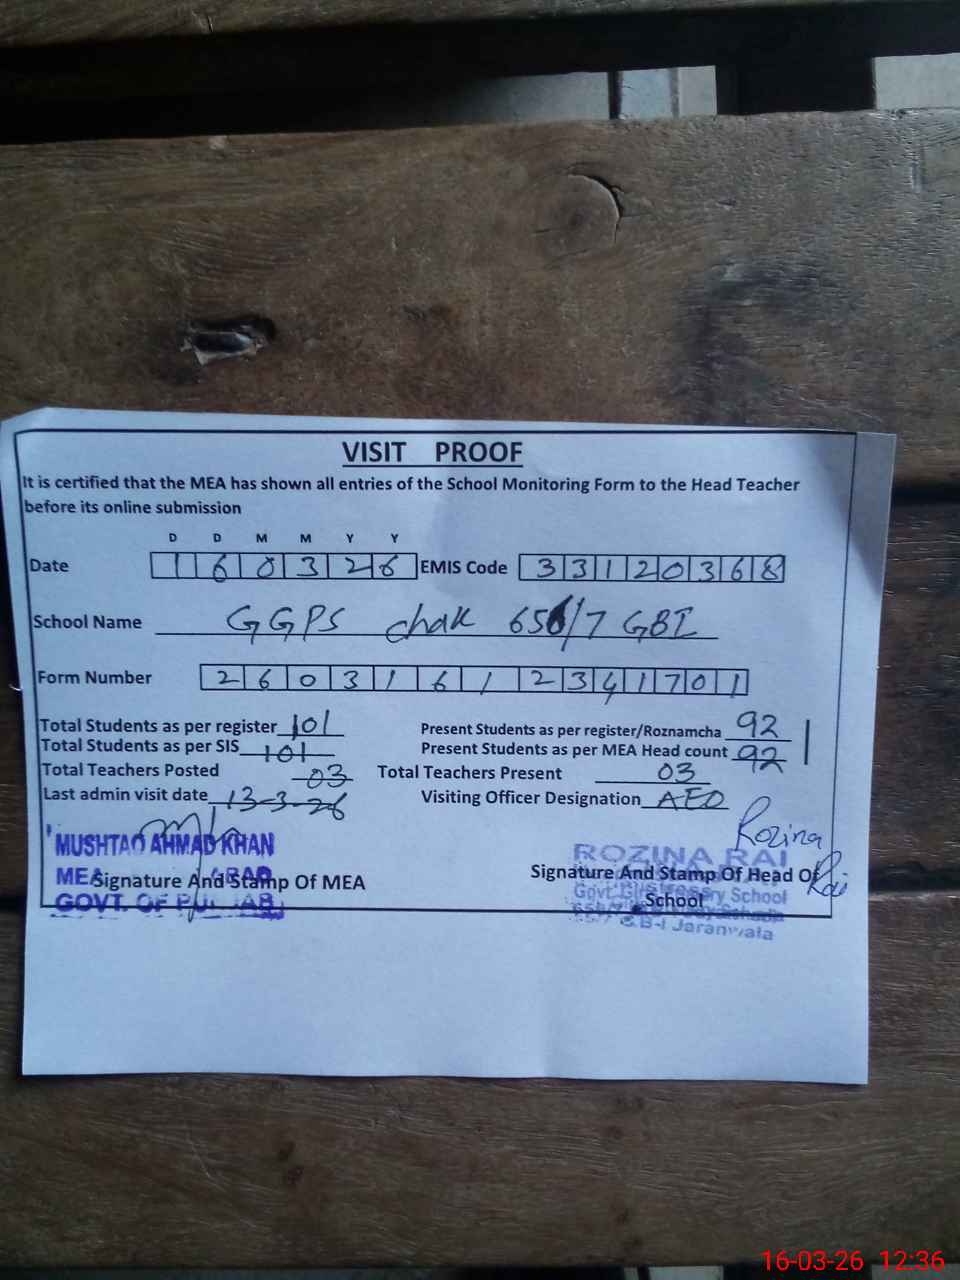 VISIT PROOF
It is certified that the MEA has shown all entries of the School Monitoring Form to the Head Teacher
before its online submission
D D M M Y Y
Date 1 6 0 3 2 6 EMIS Code 3 3 1 2 0 3 6 8
School Name GGPS chak 656/7 GBI
Form Number 2 6 0 3 1 6 1 2 3 4 1 7 0 1
Total Students as per register 101 Present Students as per register/Roznamcha 92
Total Students as per SIS 101 Present Students as per MEA Head count 92
Total Teachers Posted 03 Total Teachers Present 03
Last admin visit date 13-3-26 Visiting Officer Designation AEO
Rozina
Rai
MUSHTAQ AHMAD KHAN ROZINA RAI
MEA
Signature And Stamp Of MEA Signature And Stamp Of Head Of
School
GOVT. OF PUNJAB
School
G.B-I Jaranwala
16-03-26 12:36